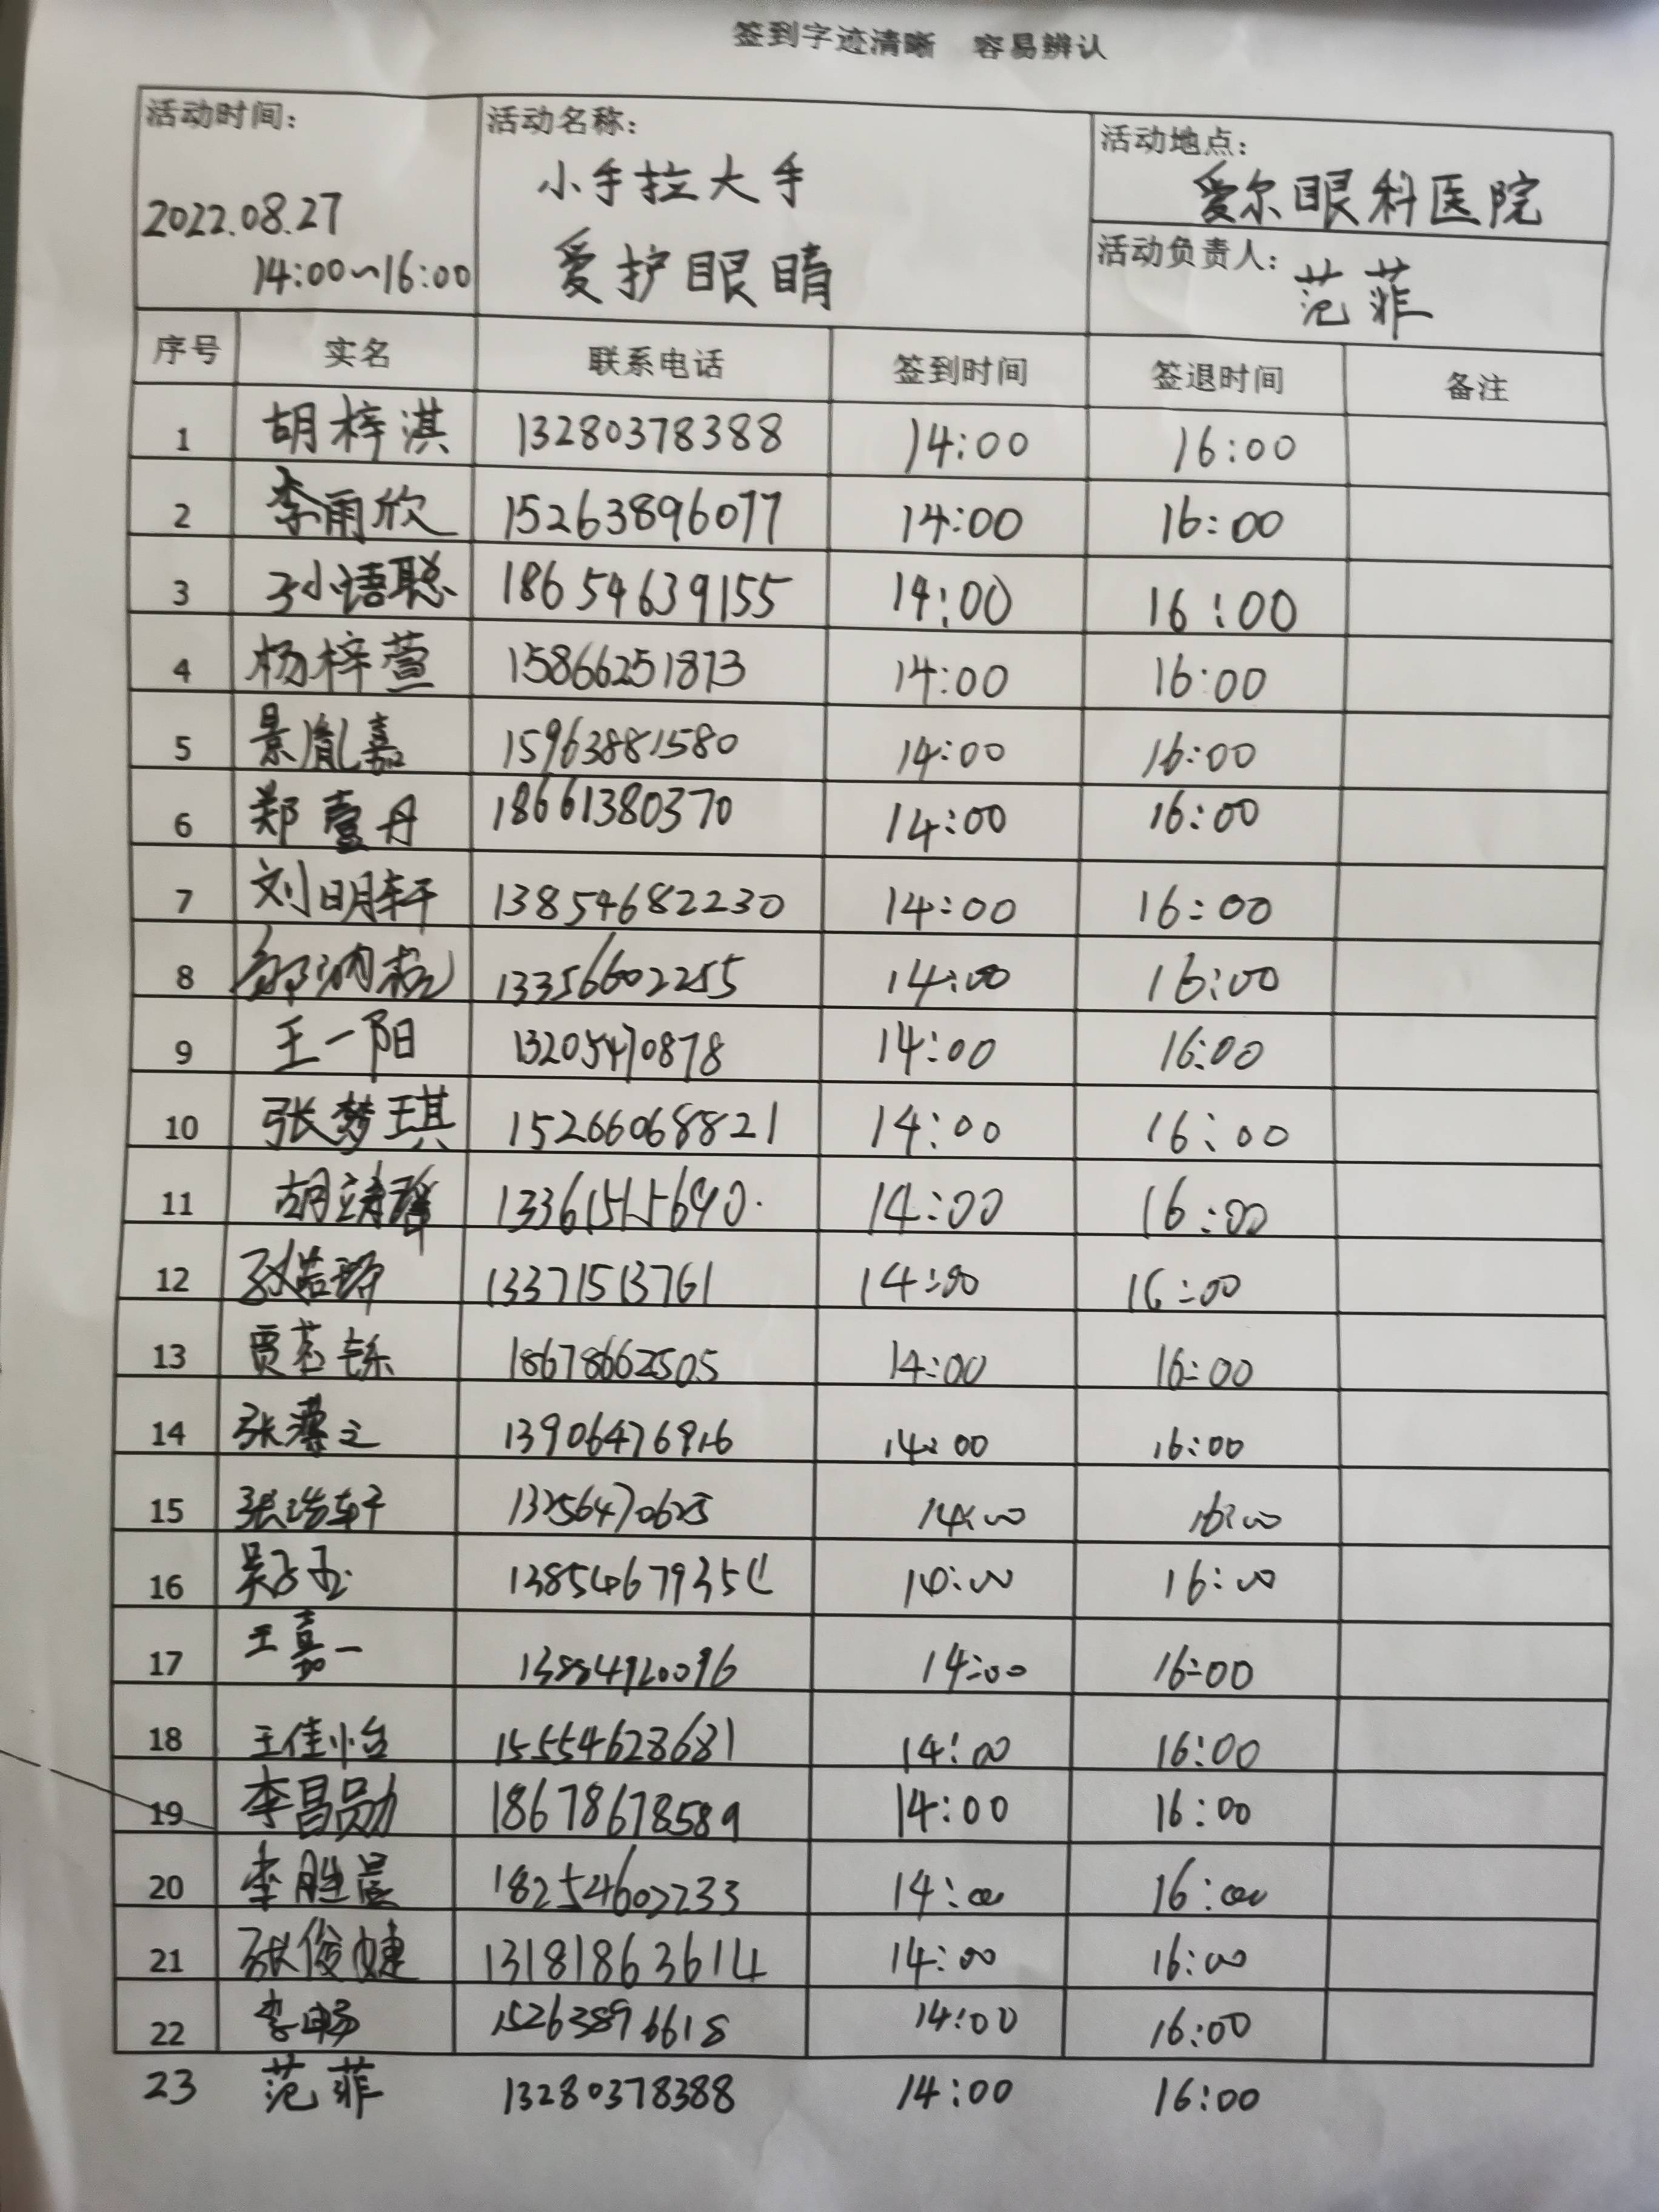 签到字迹清晰 容易辨认
活动时间： 活动名称： 活动地点：
小手拉大手 爱尔眼科医院
2022.08.27 爱护眼睛 活动负责人： 范菲
14:00~16:00
序号 实名 联系电话 签到时间 签退时间 备注
1 胡梓淇 13280378388 14:00 16:00
2 李雨欣 15263896077 14:00 16:00
3 孙语聪 18654639155 14:00 16:00
4 杨梓萱 15866251813 14:00 16:00
5 景胤嘉 15963881580 14:00 16:00
6 郑壹丹 18661380370 14:00 16:00
7 刘明轩 13854682230 14:00 16:00
8 13356602255 14:00 16:00
9 王一阳 13205470878 14:00 16:00
10 张梦琪 15266068821 14:00 16:00
11 14:00 16:00
12 13371513761 14:00 16:00
13 18678662505 14:00 16:00
14 14:00 16:00
15 张浩轩 13256470625 14:00 16:00
16 14:00 16:00
17 王嘉一 14:00 16:00
18 王佳怡 15554628681 14:00 16:00
19 李昌勋 18678678589 14:00 16:00
20 李胜晨 18254602233 14:00 16:00
21 张俊婕 13181863614 14:00 16:00
22 李畅 15263896618 14:00 16:00
23 范菲 13280378388 14:00 16:00